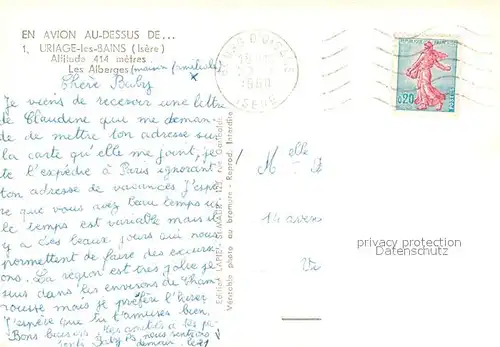 EN AVION AU-DESSUS DE...
1. URIAGE-les-BAINS (Isère)
Altitude 414 mètres
Les Alberges (maison familiale) ×
Chère Baby
Je viens de recevoir une lettre
de Claudine qui me deman-
de de mettre ton adresse sur
la carte qu'elle me joint, je
te l'expédie à Paris ignorant
ton adresse de vacances J'espè-
re que vous avez beau temps ici
le temps est variable mais il
y a des beaux jours qui nous
permettent de faire des excursi-
ons. La région est très jolie je
suis dans les environs de Cham
rousse mais je préfère l'hiver
J'espère que tu t'amuses bien.
Bons baisers
Baby
nous rentrons
Editions LAPIE - St-MAUR
Véritable photo au bromure - Reprod. Interdite
BOURG D'OISANS
1960
ISERE
0,20
POSTES
Melle
14 aven
privacy protection
Datenschutz